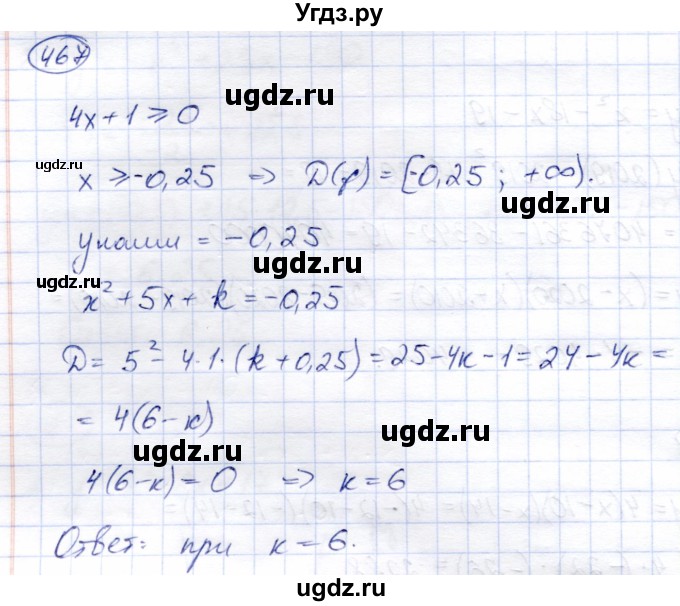 Угдз.ру
467
ugdz.ru
4x + 1 ⩾ 0
ugdz.ru ugdz.ru
x ⩾ -0,25 => D(f) = [-0,25 ; +∞).
ugdz.ru
yнаим = -0,25
ugdz.ru
ugdz.ru
x² + 5x + k = -0,25
ugdz.ru
D = 5² - 4·1·(k + 0,25) = 25 - 4k - 1 = 24 - 4k =
ugdz.ru
= 4(6 - k)
ugdz.ru
ugdz.ru
4(6 - k) = 0 => k = 6
ugdz.ru
Ответ: при k = 6.
ugdz.ru
ugdz.ru